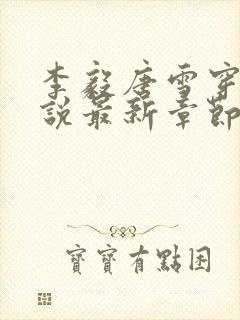 李毅唐雪穿
說最新章節
寶寶有點困